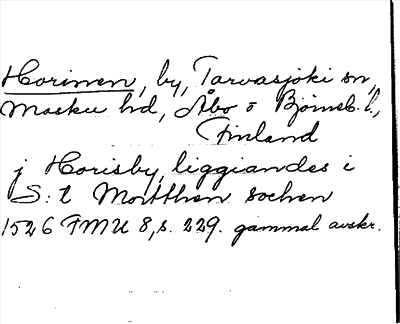 Horinen, by, Tarvasjoki sn,
Masku hd, Åbo o Björneb. l.,
Finland
j Horisby, liggiandes i
S:t Mortthen sochen
1526 FMU 8, s. 229. gammal avskr.